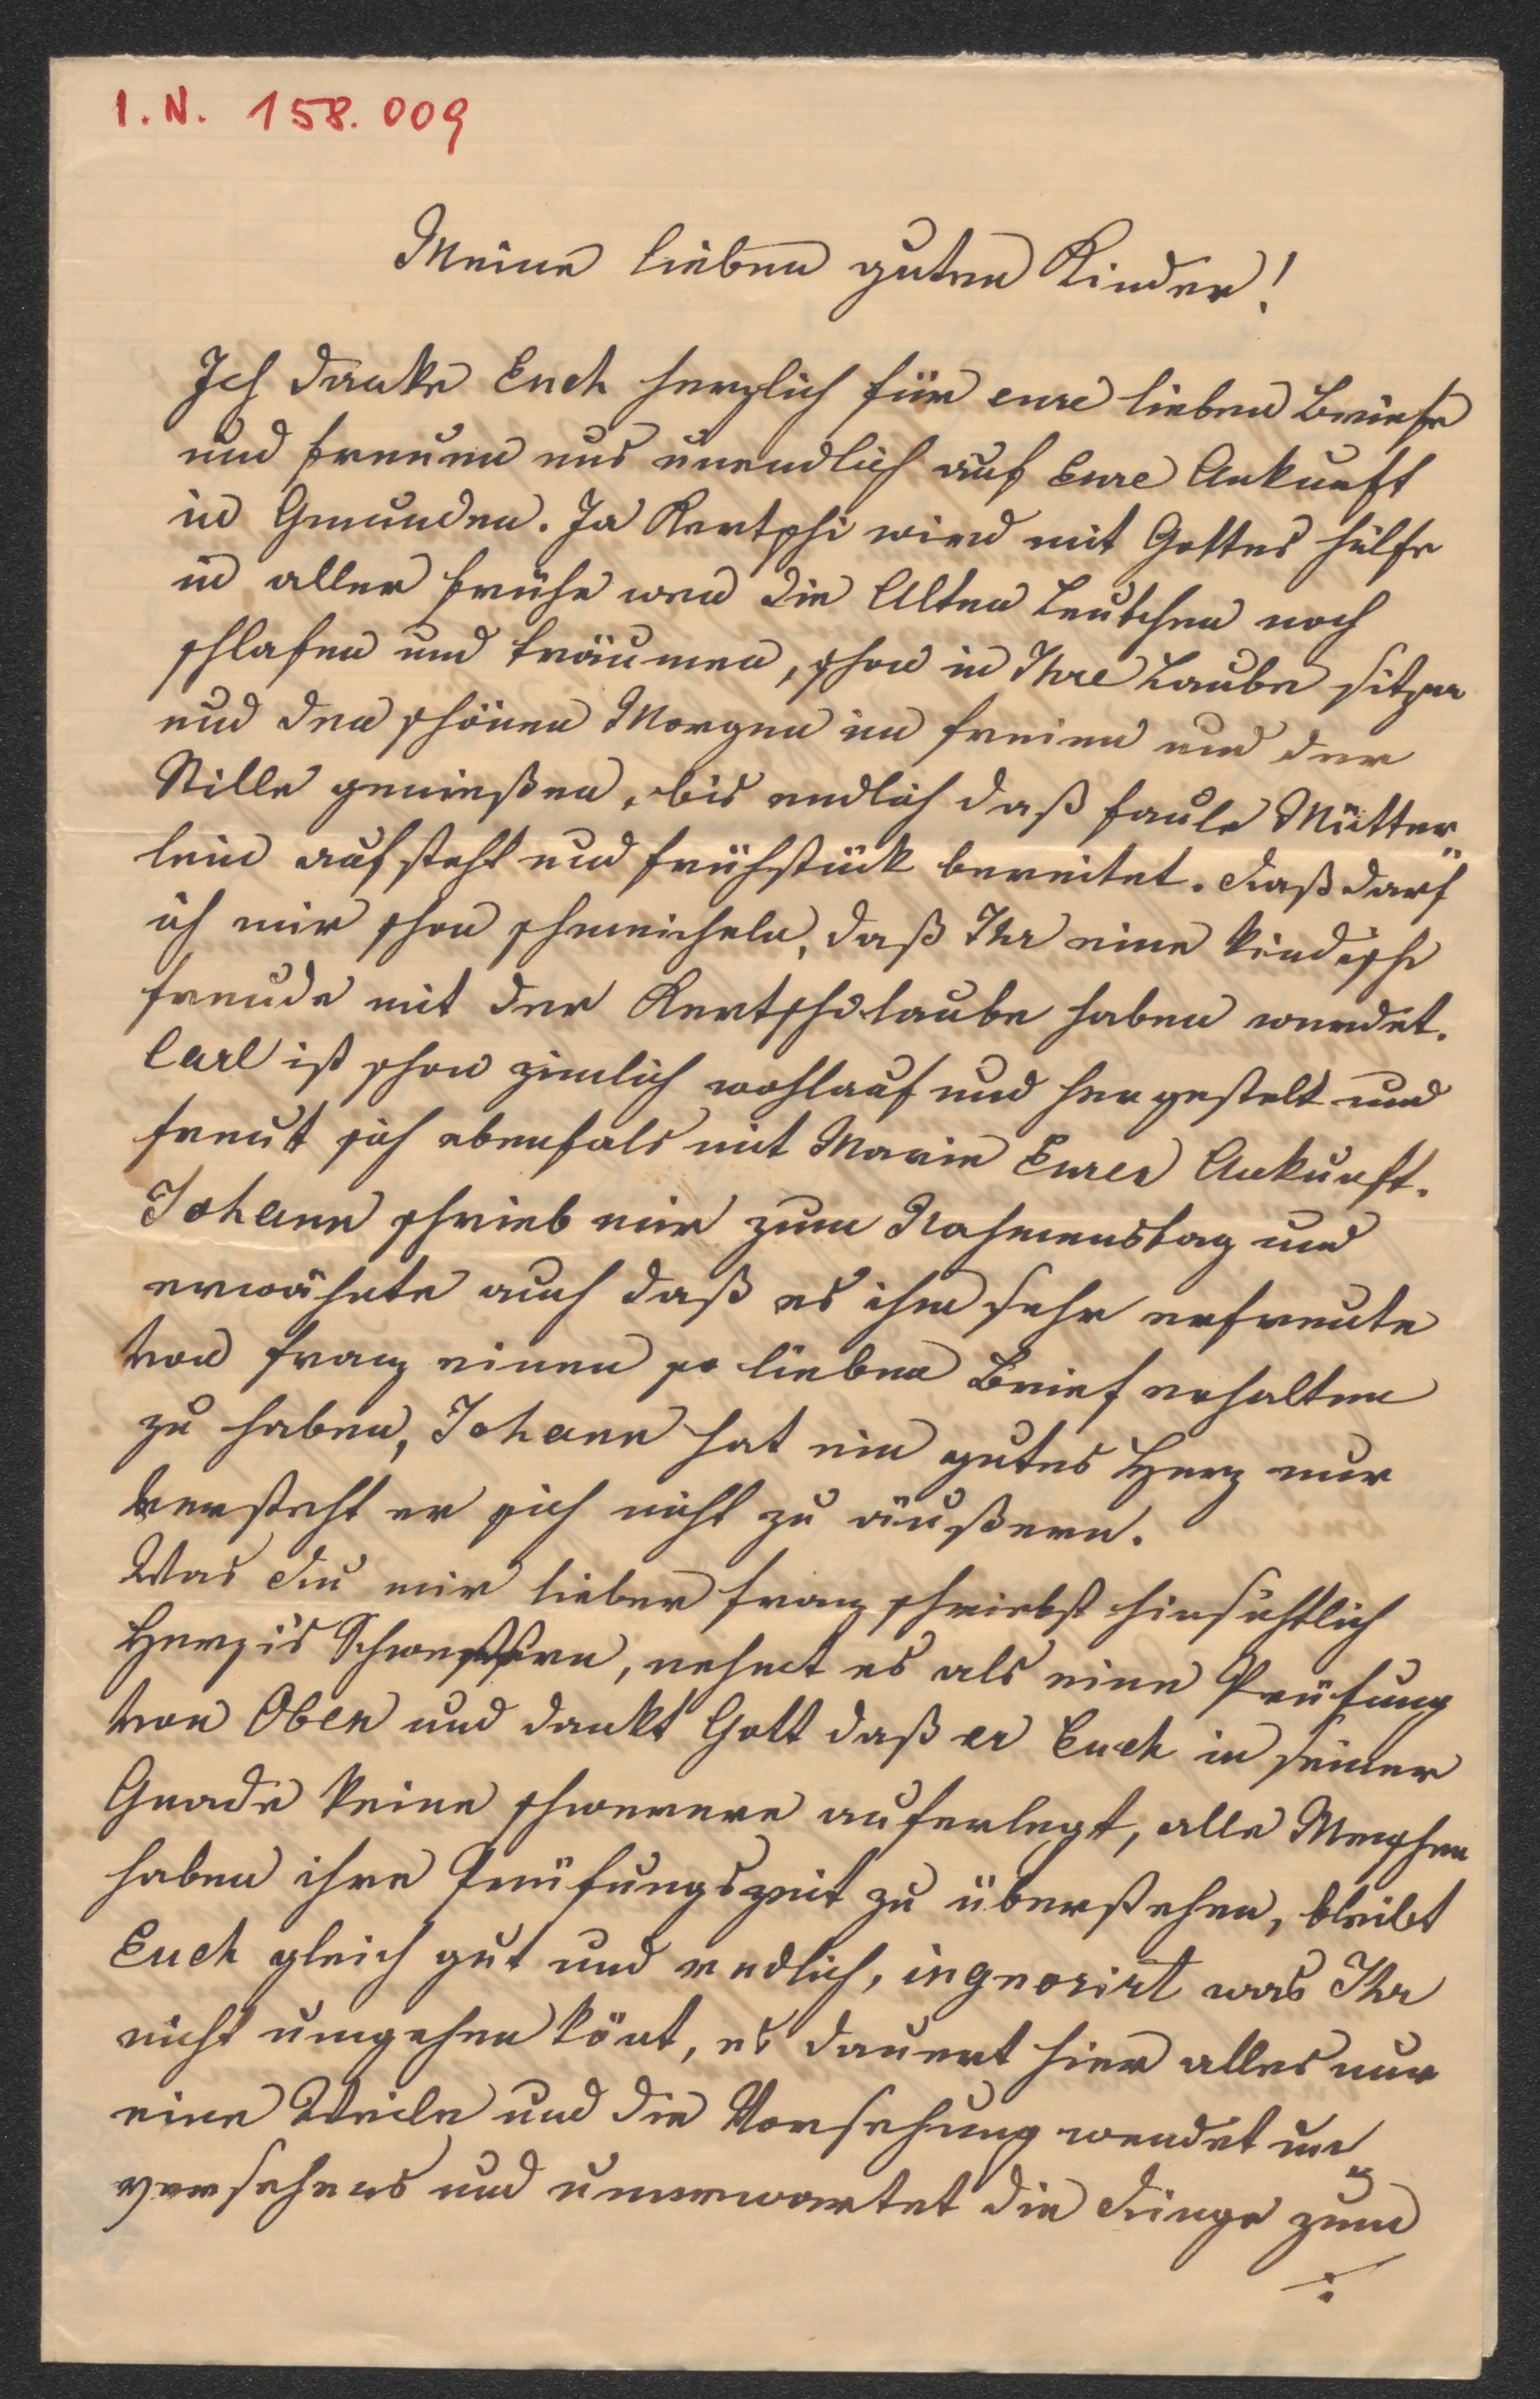 I. N. 158.009
Meine lieben guten Kinder!
Ich danke Euch herzlich für eure lieben Briefe
und freuen uns unendlich auf Eure Ankunft
in Gmunden. Ja Kertschi wird mit Gottes hülfe
in aller frühe wen die Alten Leutchen noch
schlafen und träumen, schon in Ihre Laube sitzen
und den schönen Morgen im freien und der
Stille genießen, bis endlich daß faule Mütter„
lein aufsteht und frühstück bereitet. Daß darf
ich mir schon schmeicheln, daß Ihr eine kindische
freude mit der Kertschilaube haben werdet.
Carl ist schon zimlich wohlauf und hergestelt und
freut sich ebenfals mit Marie Eurer Ankunft.
Johann schrieb mir zum Nahmenstag und
erwähnte auch daß es ihm sehr erfreute
von franz einen so lieben Brief erhalten
zu haben, Johann hat ein gutes Herz nur
versteht er sich nicht zu äußern.
Was Du mir lieber franz schriebst hinsichtlich
Herzis Schwestern, nehmt es als eine Prüfung
von Oben und dankt Gott daß er Euch in seiner
Gnade keine schwerere auferlegt, alle Menschen
haben ihre Prüfungszeit zu überstehen, bleibt
Euch gleich gut und redlich, ingnorirt was Ihr
nicht umgehen könt, es dauert hier alles nur
eine Weile und die Vorsehung wendet un„
versehens und unerwartet die Dinge zum
./.